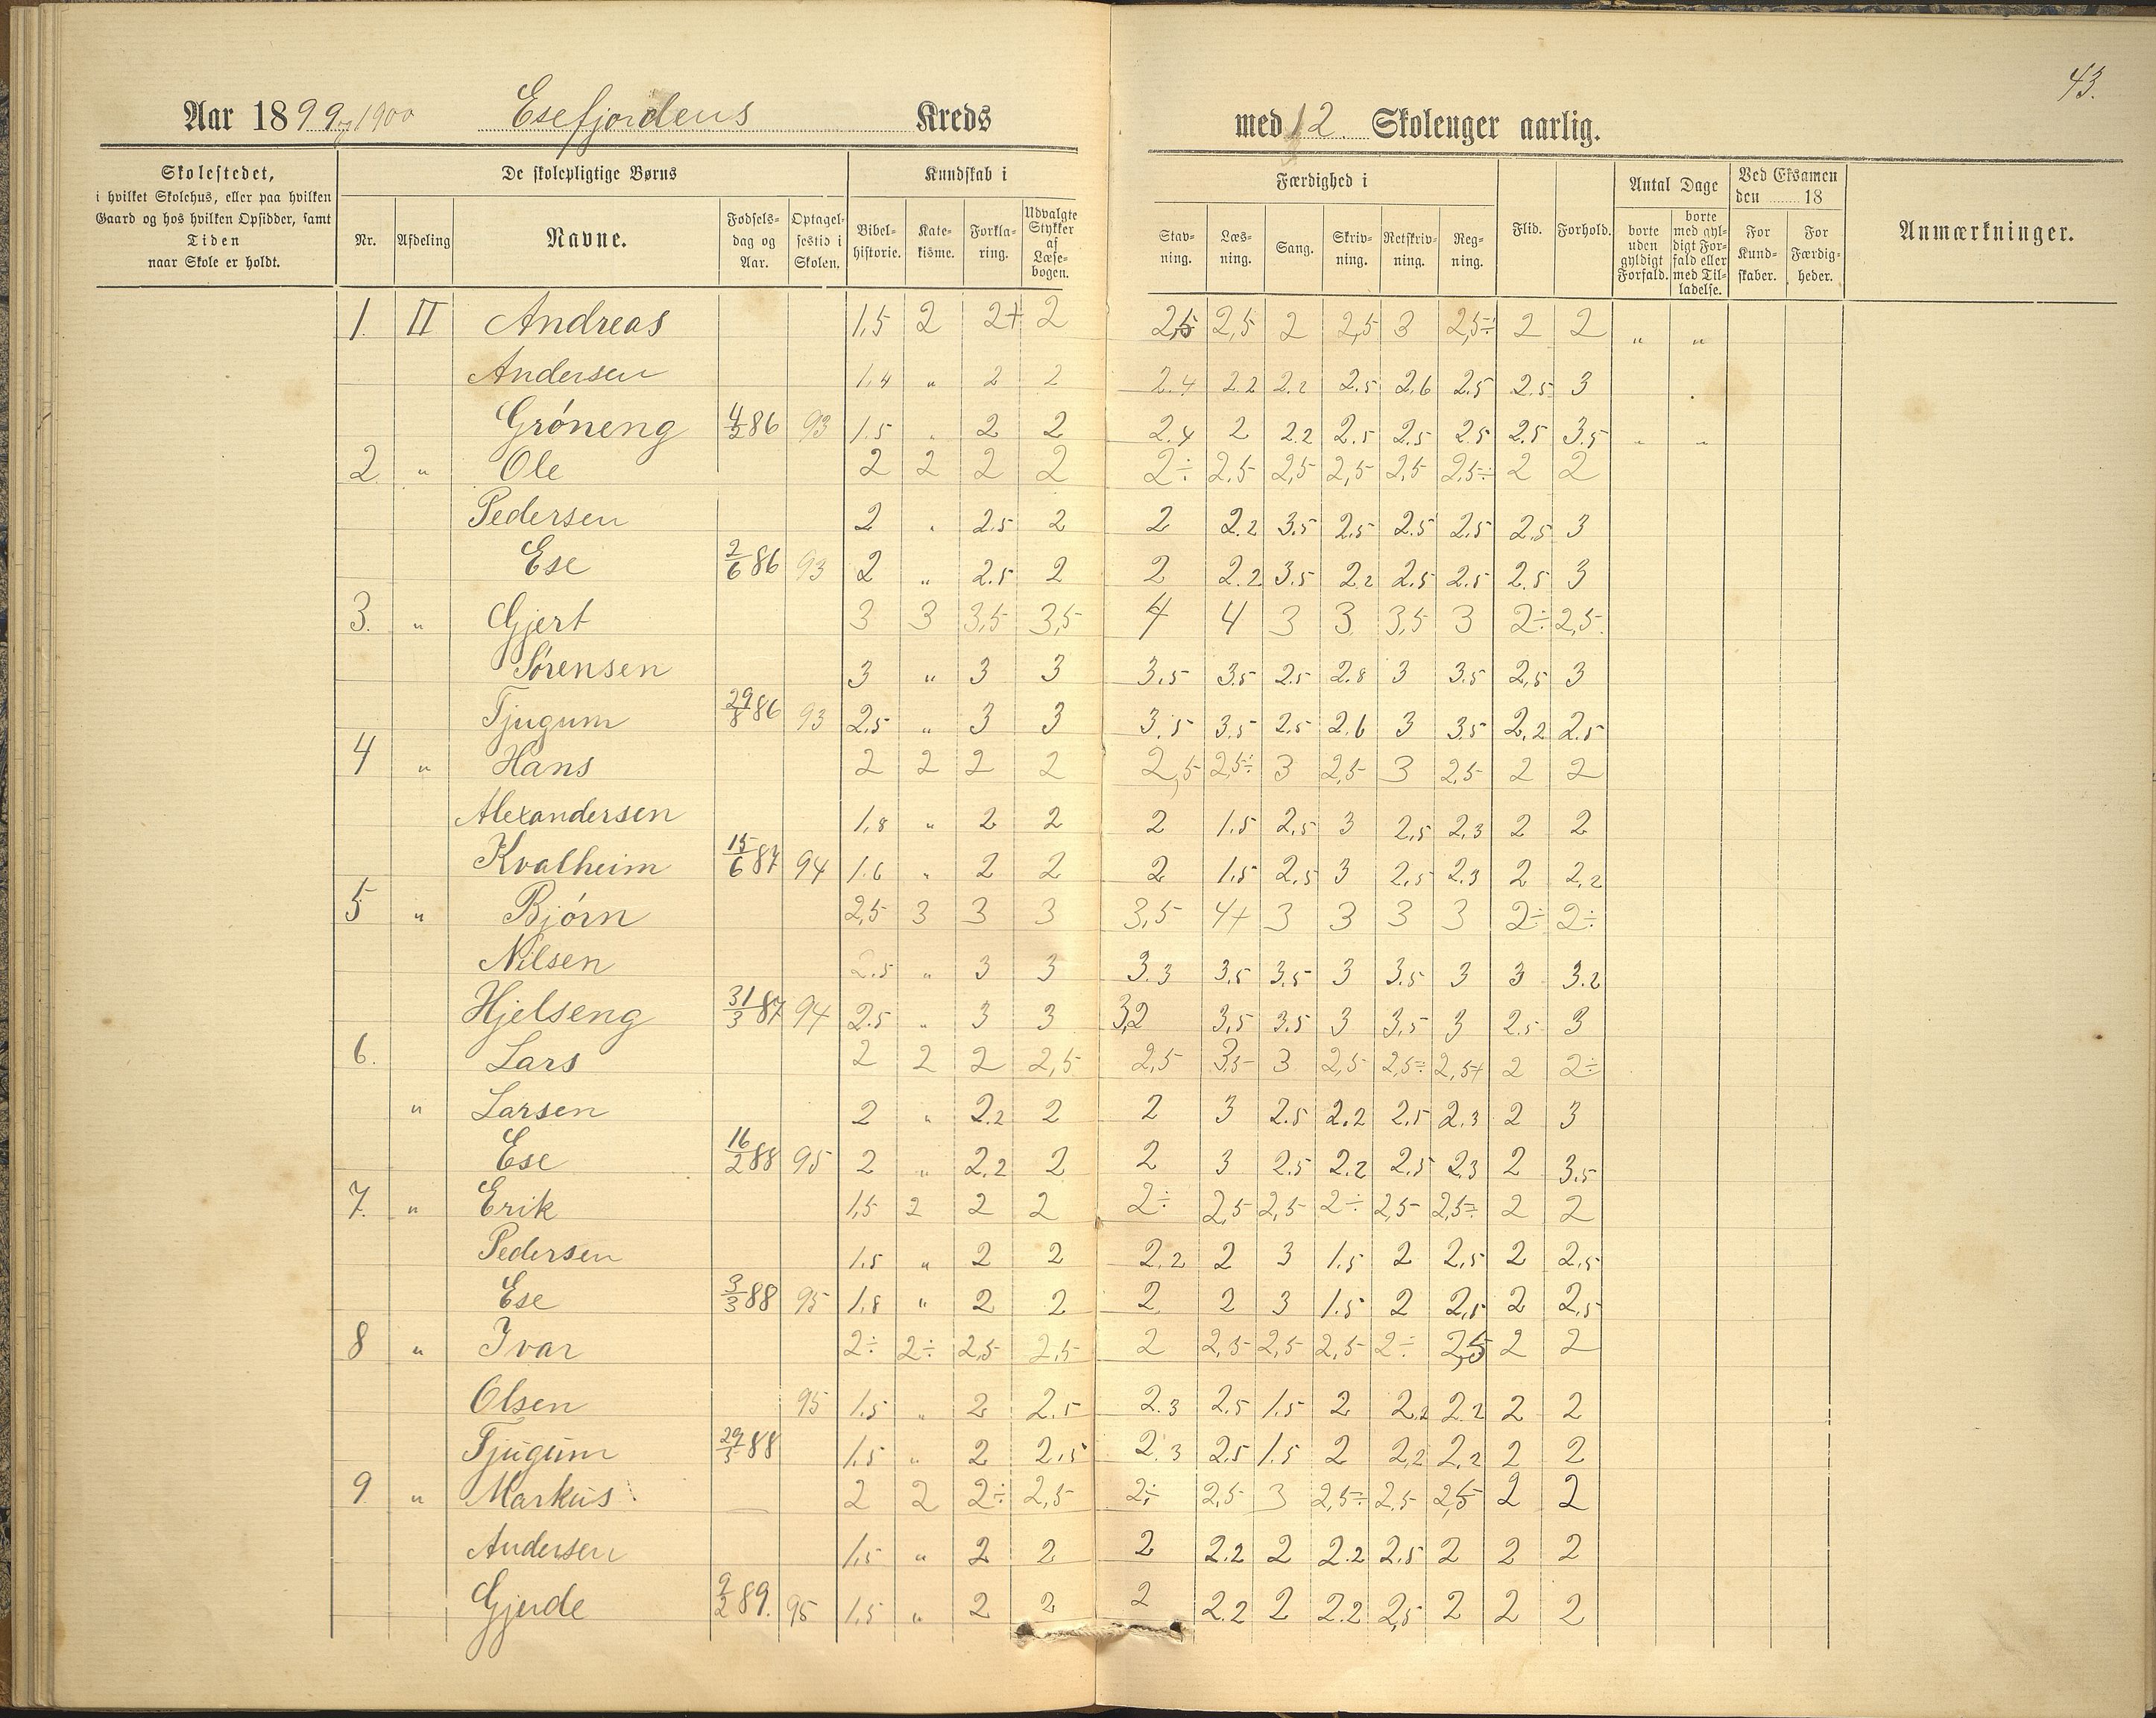 43.
Aar 1899 og 1900 Esefjordens Kreds med 12 Skoleuger aarlig.
Skolestedet, i hvilket Skolehus, eller paa hvilken Gaard og hos hvilken Opsidder, samt Tiden naar Skole er holdt.
De skolepligtige Børns
Nr. Afdeling Navne. Fødselsdag og Aar. Optagelsestid i Skolen.
Kundskab i
Bibelhistorie. Katekisme. Forklaring. Udvalgte Stykker af Læsebogen.
Færdighed i
Stavning. Læsning. Sang. Skrivning. Retskrivning. Regning.
Flid. Forhold.
Antal Dage
borte uden gyldigt Forfald. borte med gyldigt Forfald eller med Tilladelse.
Ved Eksamen den 18
For Kundskaber. For Færdigheder.
Anmærkninger.
1. II Andreas 1,5 2 2+ 2 2,5 2,5 2 2,5 3 2,5÷ 2 2 " "
Andersen 1.4 " 2 2 2.4 2.2 2.2 2.5 2.6 2.5 2.5 3
Grøneng 4/2 86 93 1.5 " 2 2 2.4 2 2.2 2.5 2.5 2.5 2.5 3.5 " "
2. " Ole 2 2 2 2 2÷ 2,5 2,5 2,5 2,5 2,5÷ 2 2
Pedersen 2 " 2.5 2 2 2.2 3.5 2.5 2.5 2.5 2.5 3
Ese 2/6 86 93 2 " 2.5 2 2 2.2 3.5 2.2 2.5 2.5 2.5 3
3. " Gjert 3 3 3,5 3,5 4 4 3 3 3,5 3 2÷ 2,5
Sørensen 3 " 3 3 3.5 3.5 2.5 2.8 3 3.5 2.5 3
Tjugum 29/8 86 93 2.5 " 3 3 3.5 3.5 2.5 2.6 3 3.5 2.2 2.5
4 " Hans 2 2 2 2 2,5 2,5÷ 3 2,5 3 2,5 2 2
Alexandersen 1.8 " 2 2 2 1.5 2.5 3 2.5 2.3 2 2
Kvalheim 15/6 87 94 1.6 " 2 2 2 1.5 2.5 3 2.5 2.3 2 2.2
5 " Bjørn 2,5 3 3 3 3,5 4+ 3 3 3 3 2÷ 2÷
Nilsen 2.5 " 3 3 3.3 3.5 3.5 3 3.5 3 3 3.2
Hjelseng 31/3 87 94 2.5 " 3 3 3,2 3,5 3.5 3 3.5 3 2.5 3
6. Lars 2 2 2 2,5 2,5 3,5 3 2,5 2,5÷ 2,5+ 2 2÷
" Larsen 2 " 2.2 2 2 3 2.5 2.2 2.5 2.3 2 3
Ese 16/2 88 95 2 " 2.2 2 2 3 2.5 2.2 2.5 2.3 2 3.5
7. " Erik 1,5 2 2 2 2÷ 2,5 2,5 2÷ 2,5 2,5÷ 2 2
Pedersen 1.5 " 2 2 2.2 2 3 1.5 2 2.5 2 2.5
Ese 3/3 88 95 1.8 " 2 2 2 2 3 1.5 2 2.5 2 2.5
8 " Ivar 2÷ 2÷ 2,5 2,5 2 2,5 2,5 2,5 2÷ 2,5 2 2
Olsen 95 1.5 " 2 2.5 2.3 2.5 1.5 2 2.2 2.2 2 2
Tjugum 88 1.5 " 2 2.5 2.3 2.5 1.5 2 2.2 2.2 2 2
9. " Markus 2 2 2÷ 2,5 2÷ 2,5 3 2,5÷ 2,5 2,5 2 2
Andersen 1.5 " 2 2 2 2.2 2 2.2 2.5 2 2 2
Gjerde 9/2 89. 95 1.5 " 2 2 2 2.2 2 2.2 2,5 2 2 2